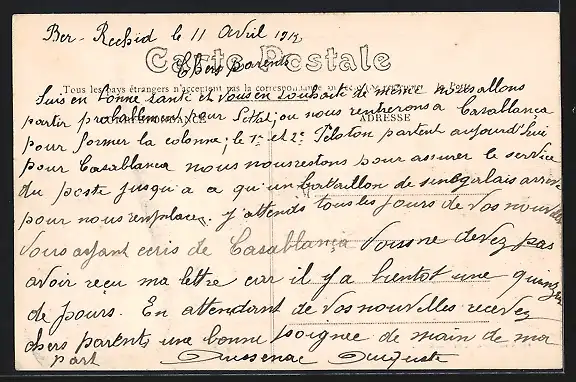 Ber-Rechid le 11 Avril 1912
Carte Postale
Chers parents
Tous les pays étrangers n'acceptent pas la correspondance au
Suis en bonne santé et vous en souhait de meme nous allons
partir probablement pour Settat, ou nous rentrerons a Casablanca
CORRESPONDANCE
ADRESSE
pour former la colonne; le 1er et 2e Peloton partent aujourd'hui
pour Casablanca nous nous restons pour assurer le service
du poste jusqu'a a qu'un bataillon de senegalais arrive
pour nous remplacer. j'attends tous les jours de vos nouvelles
Vous ayant ecris de Casablanca Vous ne devez pas
avoir reçu ma lettre car il y a bientot une quinzaine
de jours. En attendant de vos nouvelles recevez
chers parents une bonne poignee de main de ma
part Auguste